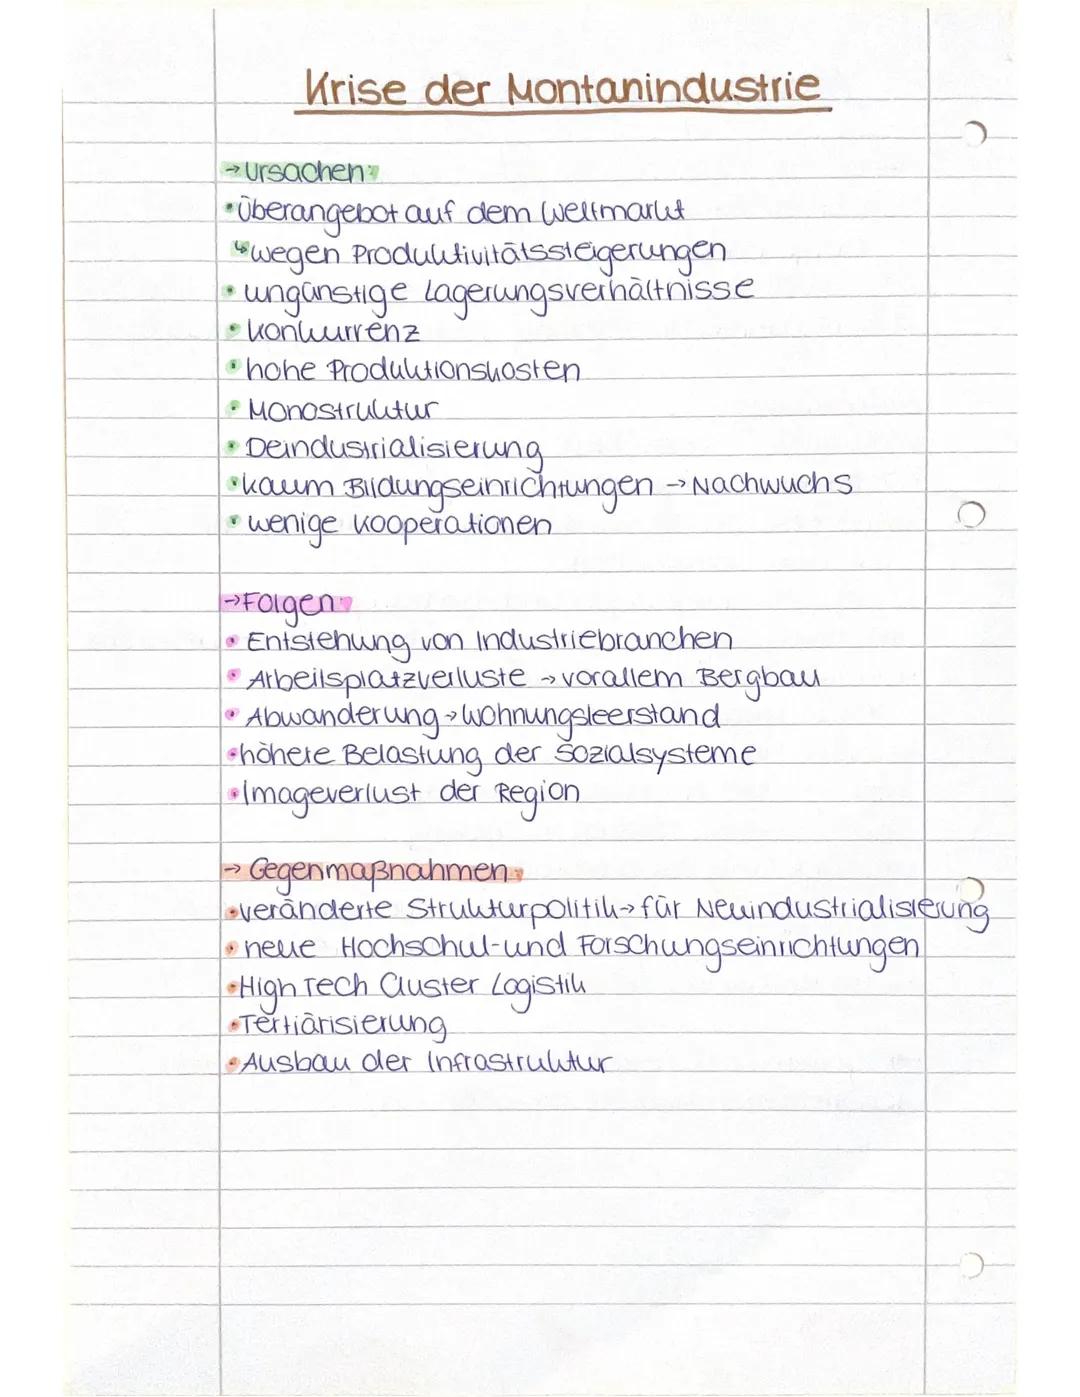 Krise der Montanindustrie
→ Ursachen:
• Überangebot auf dem Weltmarkt
↳ wegen Produktivitätssteigerungen
• ungünstige Lagerungsverhältnisse
• Konkurrenz
• hohe Produktionskosten
• Monostruktur
• Deindustrialisierung
• kaum Bildungseinrichtungen → Nachwuchs
• wenige Kooperationen
→ Folgen:
• Entstehung von Industriebranchen
• Arbeitsplatzverluste → vorallem Bergbau
• Abwanderung → Wohnungsleerstand
• höhere Belastung der Sozialsysteme
• Imageverlust der Region
→ Gegenmaßnahmen:
• veränderte Strukturpolitik → für Neuindustrialisierung
• neue Hochschul- und Forschungseinrichtungen
• High Tech Cluster Logistik
• Tertiärisierung
• Ausbau der Infrastruktur